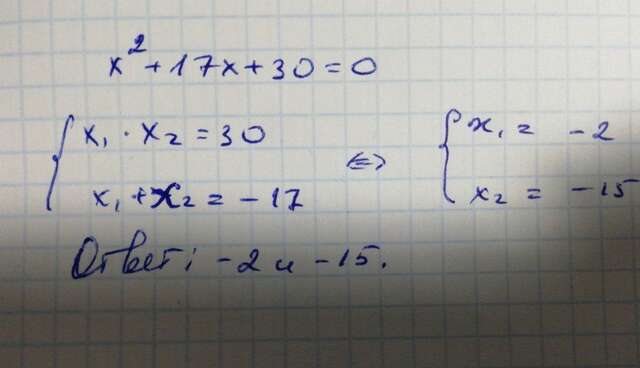 x² + 17x + 30 = 0
{ x₁ · x₂ = 30 <=> { x₁ = -2
x₁ + x₂ = -17 x₂ = -15
Ответ: -2 и -15.